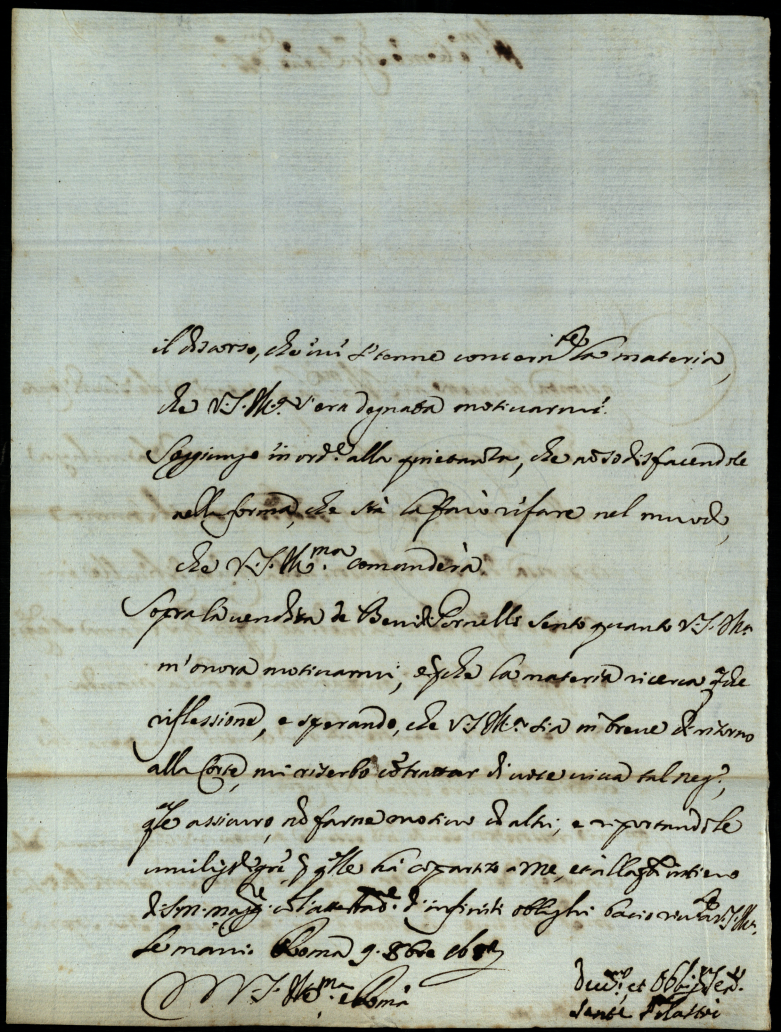 il discorso, che ivi si tenne concern.te la materia,
che V.S. Ill.ma s'era degnata motivarmi.
Soggiungo in ord.e alla quietanza, che no sodisfacendole
nella forma, che stà la farò rifare nel modo,
che V.S. Ill.ma comanderà.
Sopra la vendita de Beni di Tornelli sento quanto V.S. Ill.ma
m'onora motivarmi, e che la materia ricerca q.che
riflessione, e sperando, che V.S. Ill.ma sia in breve di ritorno
alla Corte, mi riserbo cõ trattar di voce viva tal neg.o,
q.le assicuro, nõ farne motivo ad altri, e riportandole
umiliss. gr.e p q.lle hà cõpartito a me, et alla
d'infiniti oblighi bacio riv. a V.S. Ill.ma
le mani. Roma 9. 8bre
V.S. Ill.ma Roma
Dev.mo, et Obblig.mo Ser.
Sante Pilastri